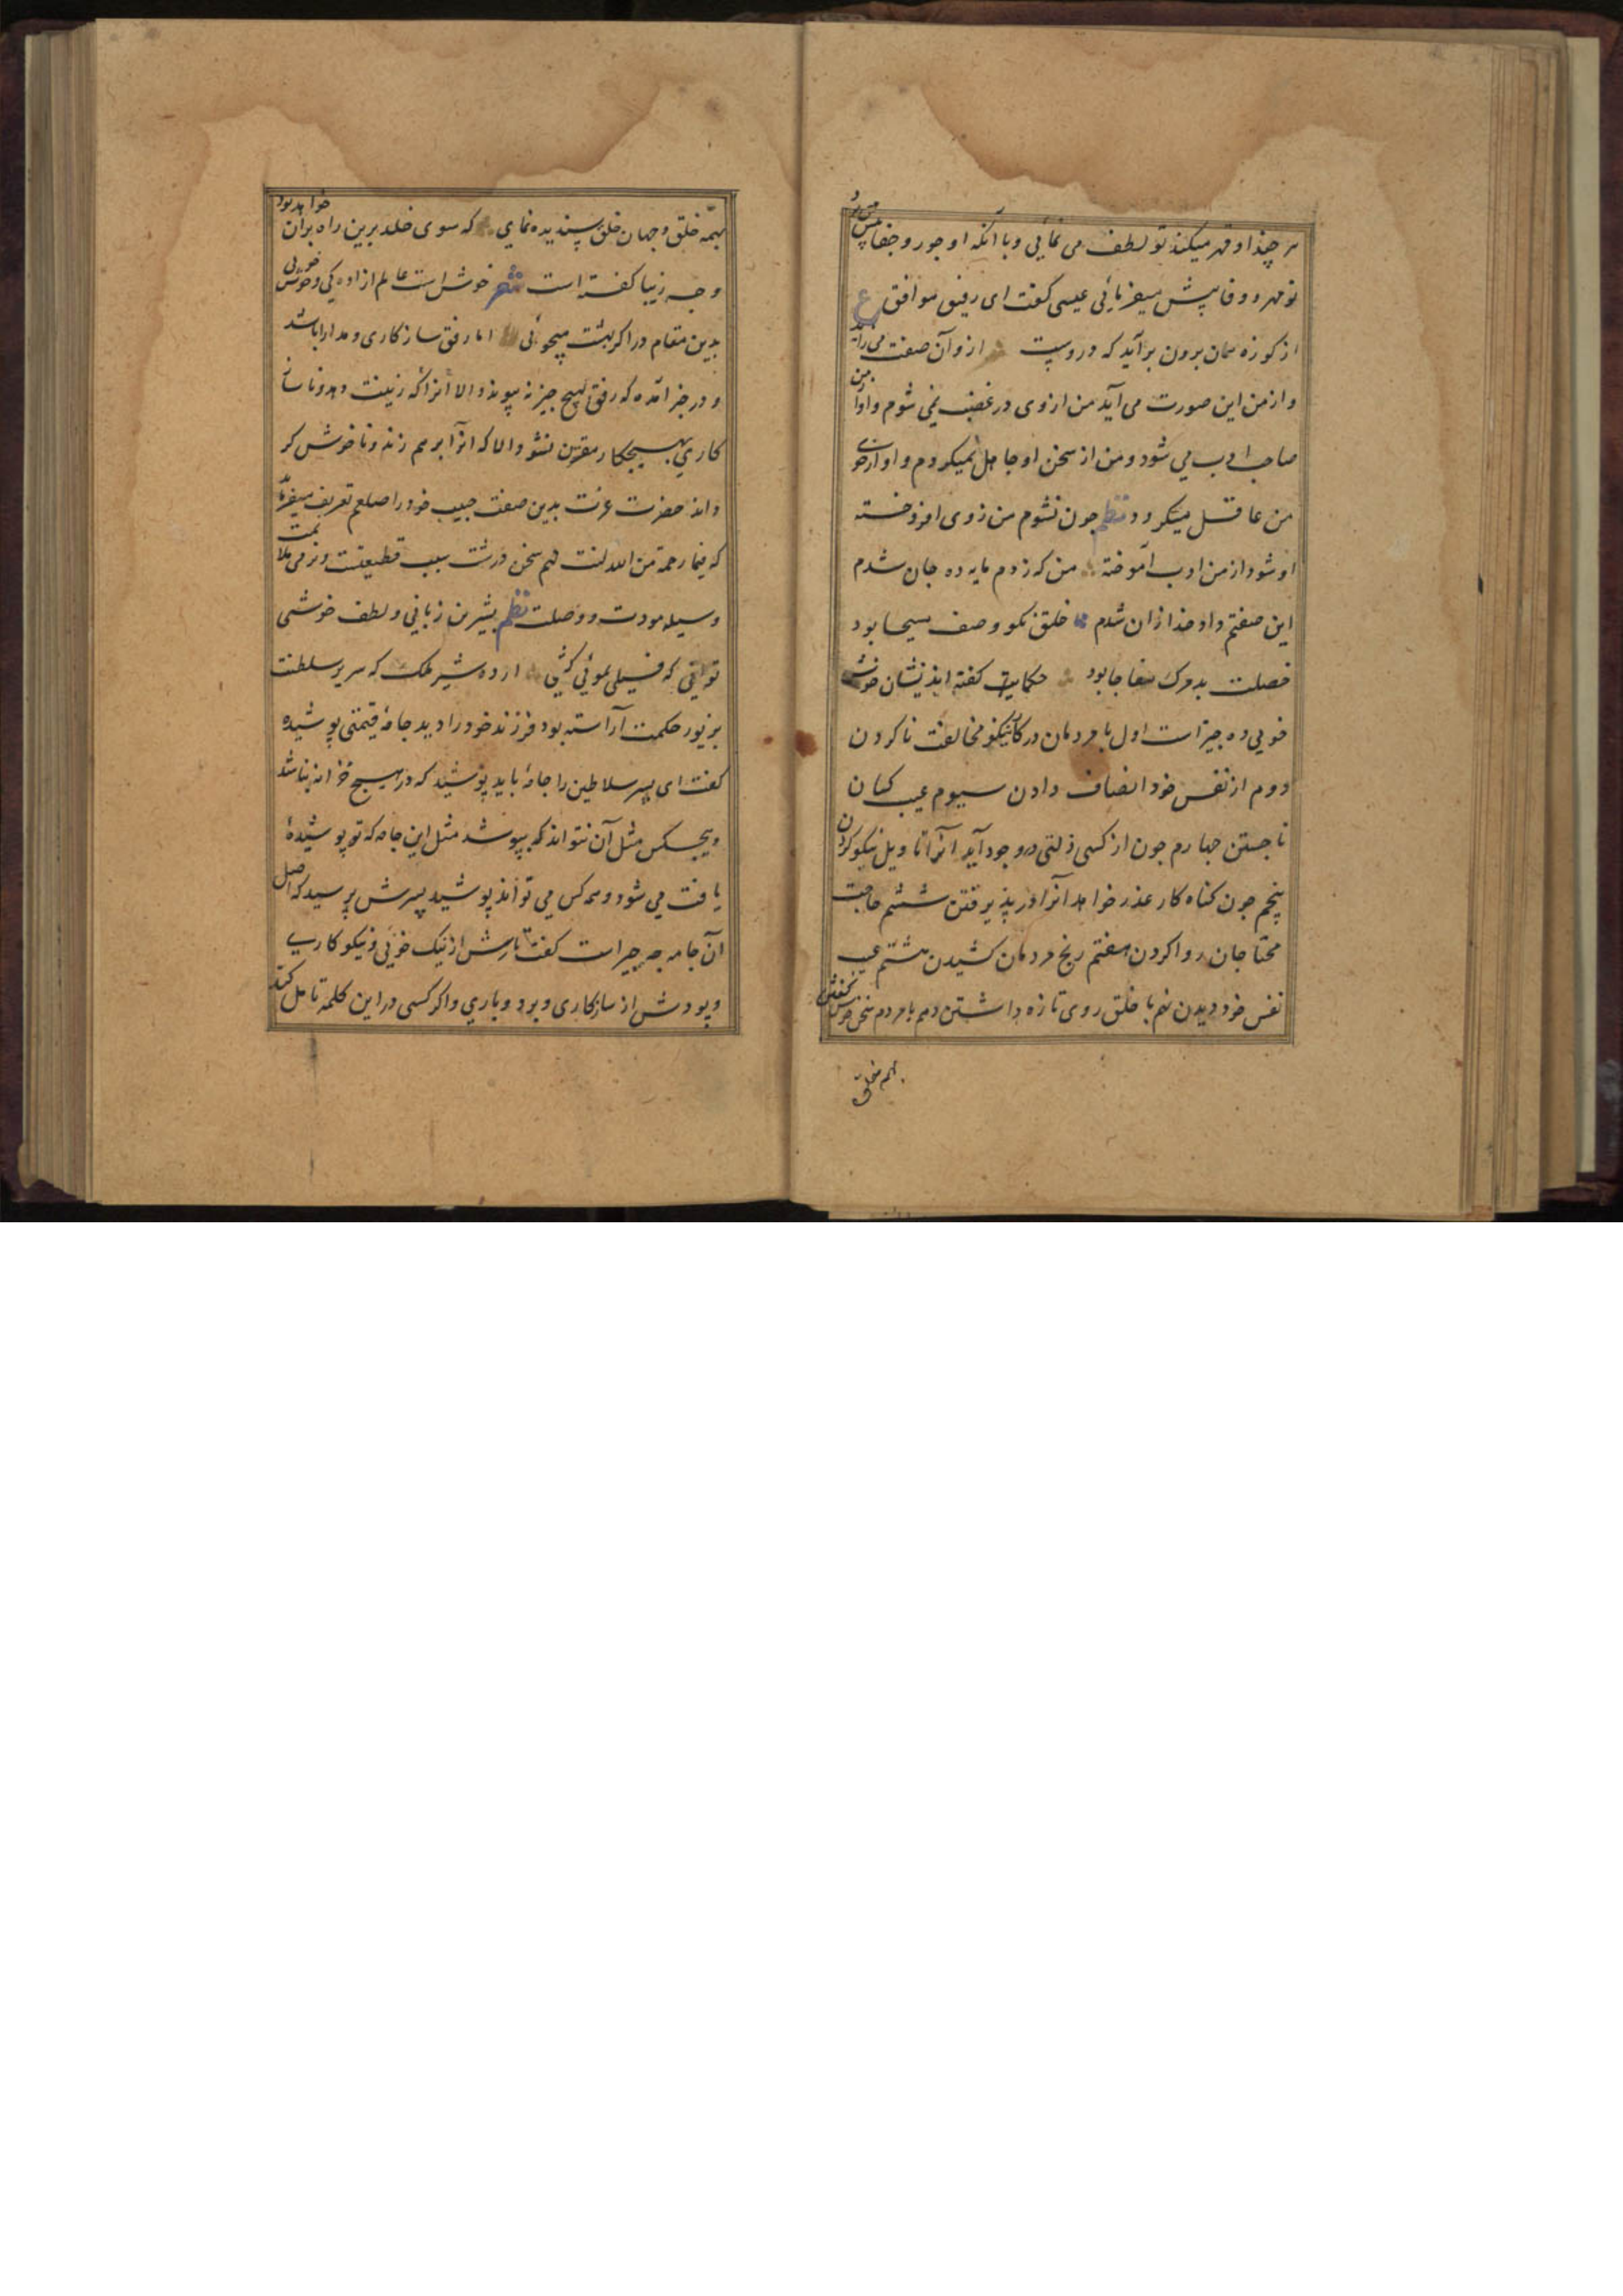 هر چند او قهر میکند تو لطف می نمایی و با آنکه او جور و جفا پیش
تو مهر و وفا پیش میفرمائی عیسی گفت ای رفیق موافق ع
از کوزه همان برون برآید که دروست از و آن صفت می زاید
و از من این صورت می آید من از وی در غضب نمی شوم و او از من
صاحب ادب می شود و من از سخن او جاهل نمیگردم و او از خوی
من عاقل میگردد نظم چون نشوم من ز وی افروخته
او شود از من ادب آموخته من که ز دم مایه ده جان شدم
این صفتم داد خدا زان شدم خلق نکو وصف مسیحا بود
خصلت بد مرک مفاجا بود حکایت گفته اند نشان خوش
خویی ده چیز است اول با مردمان در کار نیکو مخالفت ناکردن
دوم از نفس خود انصاف دادن سیوم عیب کسان
ناجستن چهارم چون از کسی ذلتی در وجود آید آنرا تاویل نیکو کردن
پنجم چون کناه کار عذر خواهد آنرا در پذیرفتن ششم حاجت
محتاجان روا کردن هفتم رنج مردمان کشیدن هشتم عیب
نفس خود دیدن نهم با خلق روی تازه داشتن دهم با مردم سخن خوش گفتن
بهمه خلق
بهمه خلق و جهان خلق پسندیده نمای که سوی خلد برین راه بران خواهد بود
و چه زیبا گفته است شعر خوش است عالم ازاده کی و خوش خویی
بدین مقام درا کر بهشت میجوئی اما رفق سازکاری و مدارا باشد
و در خبر آمده که رفق بهیچ چیز نه پیوندد الا آنرا که زینت دهد و ناساز
کاری بهیچکار مقرین نشود الا که آنرا برهم زند و ناخوش کر
داند حضرت عزت بدین صفت حبیب خود را صلعم تعریف میفرماید
که فبما رحمة من الله لنت لهم سخن درشت سبب قطیعتست و نرمی ملایمت
وسیله مودت و وصلت نظم بشیرین زبانی و لطف خوشی
توانی که فیلی بموئی کشی اردشیر ملک که سریر سلطنت
بزیور حکمت آراسته بود فرزند خود را دید جامهٔ قیمتی پوشیده
گفت ای پسر سلاطین را جامهٔ باید پوشید که در هیچ خزانه نباشد
و هیچکس مثل آن نتواند که بپوشد مثل این جامه که تو پوشیدهٔ
یافت می شود و همه کس می تواند پوشید پسرش پرسید که اصل
آن جامه چه چیز است گفت تارش از نیک خویی و نیکو کاری
و پودش از سازکاری و بردباری و اکر کسی در این کلمه تامل کند